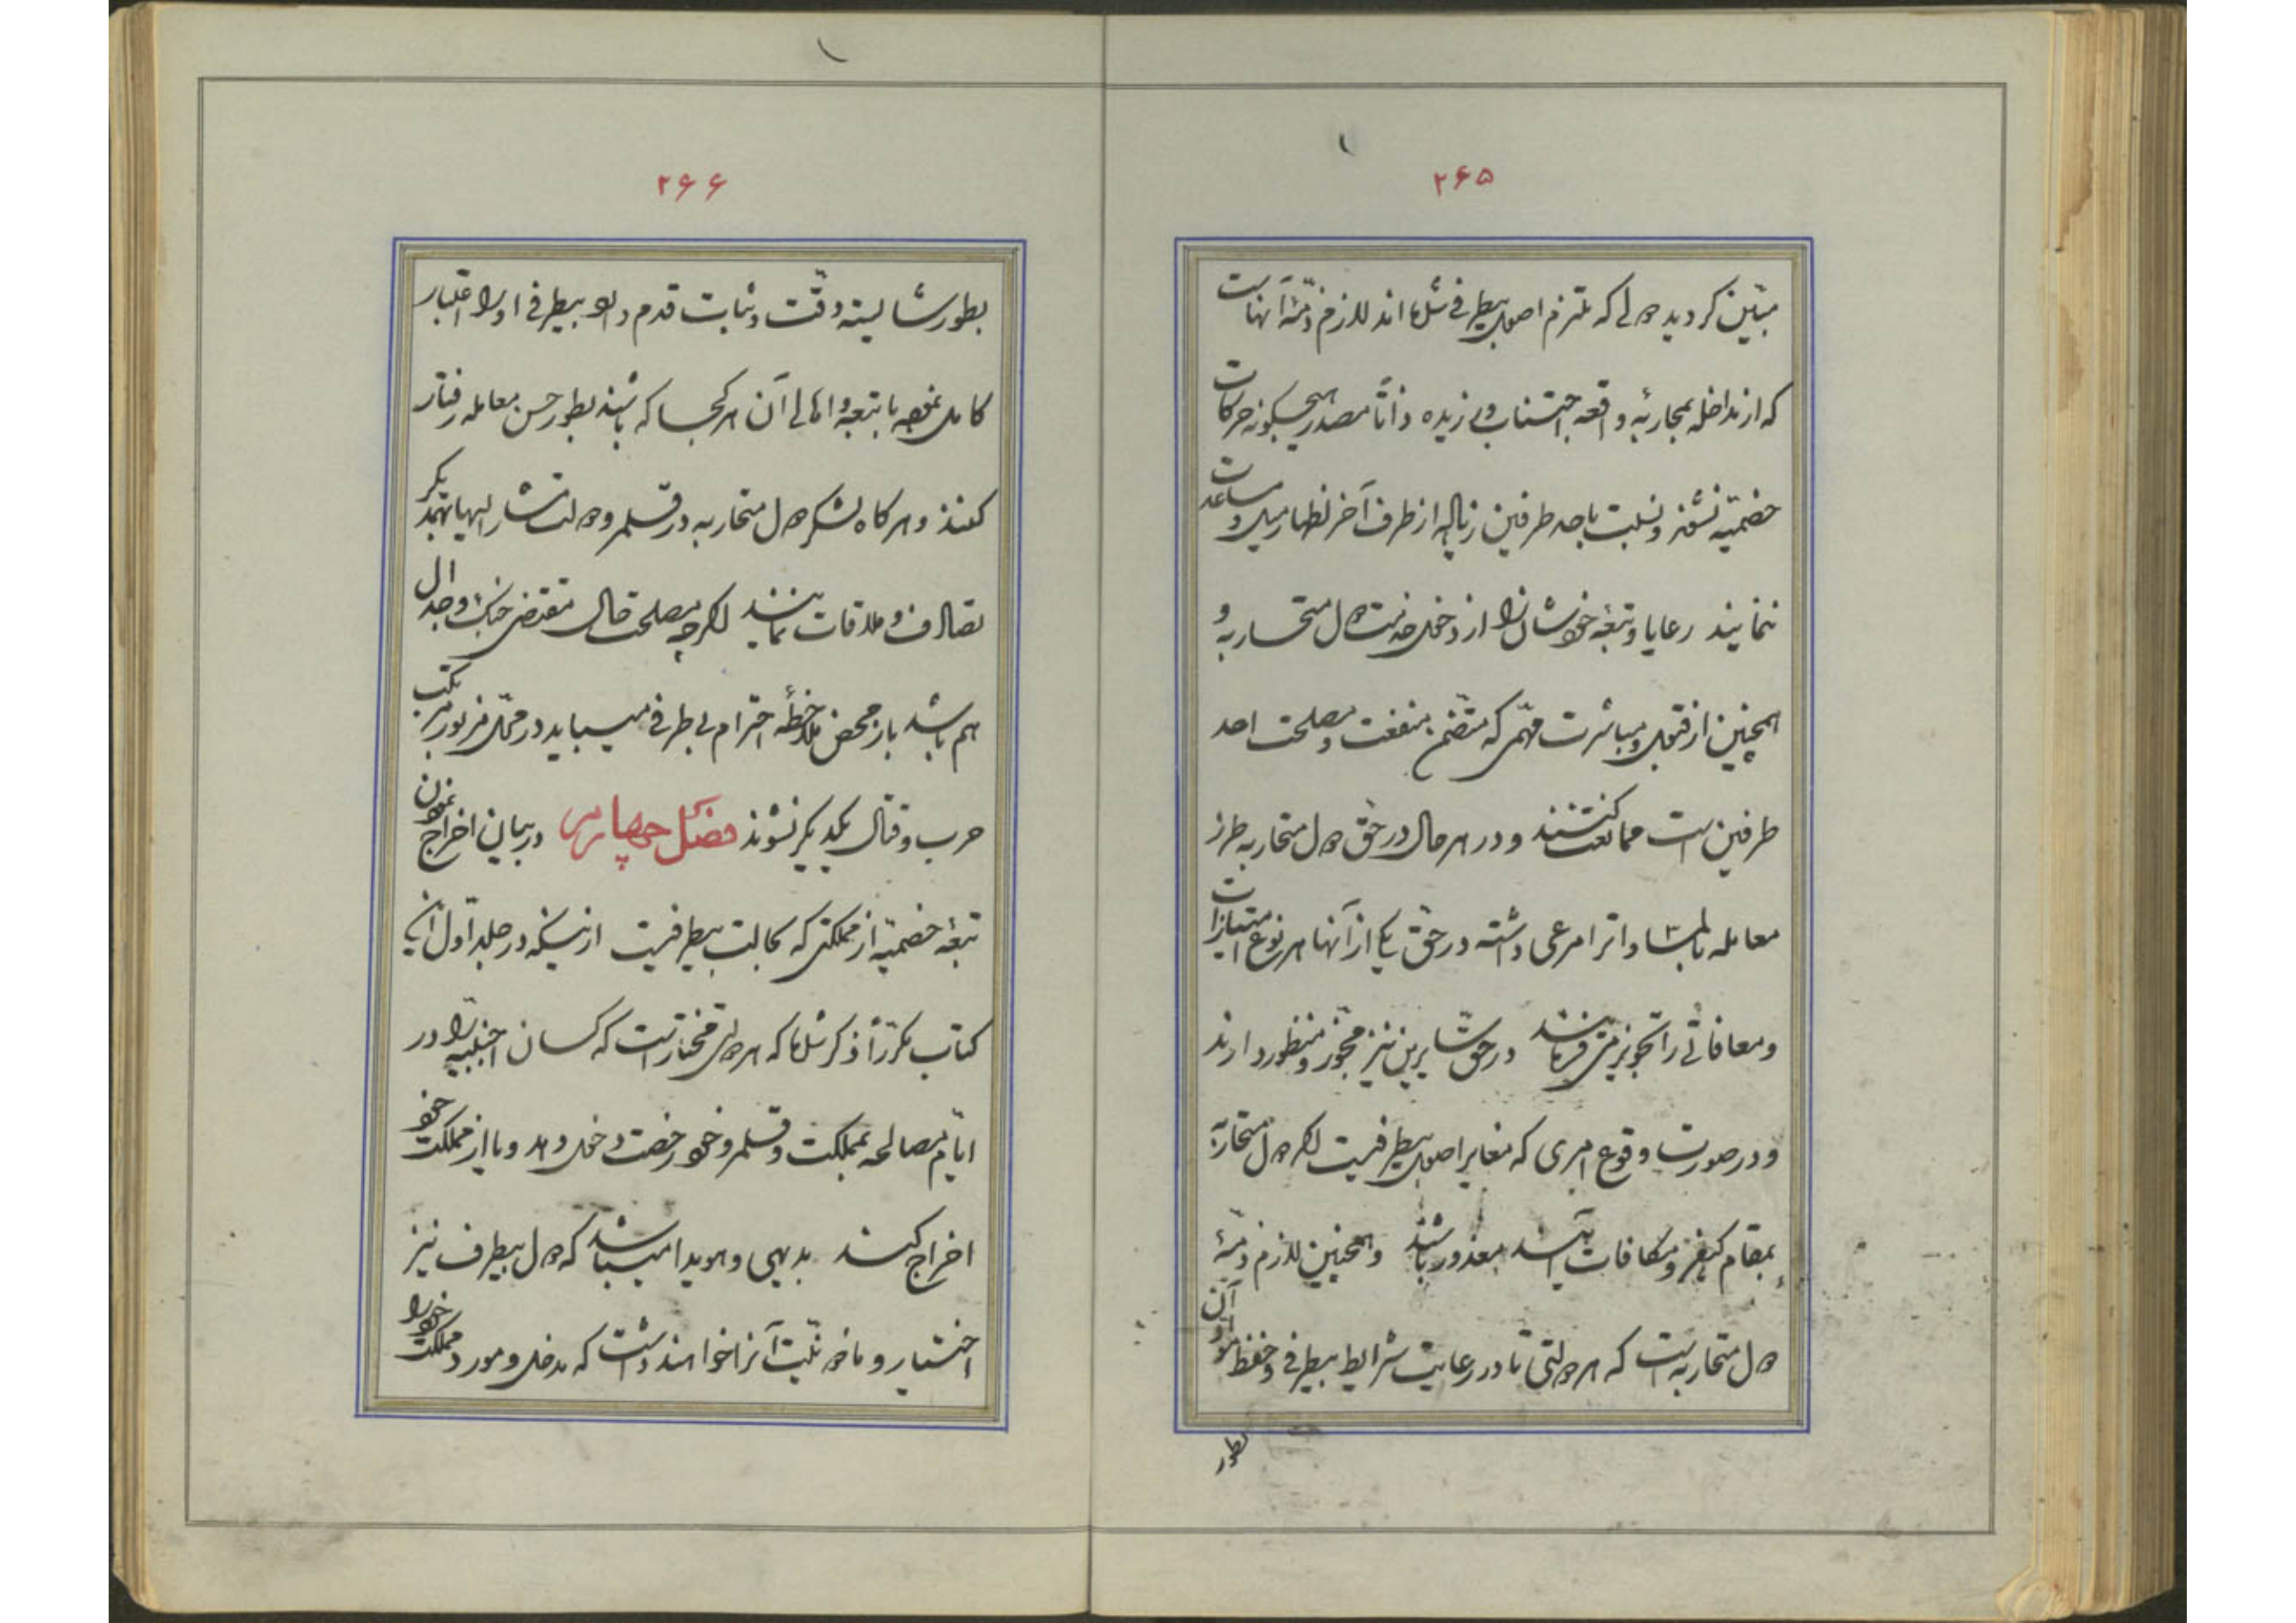 ۲۶۵
مبیّن گردید دولی که ملتزم اصول بیطرفی شده‌اند لازم ذمّهٔ آنهاست
که از مداخله بمحاربهٔ واقعه اجتناب ورزیده ذاتاً مصدر هیچگونه حرکات
خصمیّه نشوند و نسبت باحد طرفین زیاده از طرف آخر اظهار میل و مساعدت
ننمایند رعایا و تبعهٔ خودشان را از دخول خدمت دول متحاربه و
همچنین از قبول و مباشرت مهمّی که متضمّن منفعت و مصلحت احد
طرفین است ممانعت کنند و در هر حال در حقّ دول متحاربه طرز
معامله بالمساواترا مرعی داشته در حقّ یکی از آنها هر نوع امتیازات
و معافاتی را تجویز می‌فرمایند در حقّ سایرین نیز مجوّز و منظور دارند
و در صورت وقوع امری که مغایر اصول بیطرفیست اگر دول متحاربه
بمقام کیفر و مکافات آیند معذور باشند و همچنین لازم ذمّهٔ
دول متحاربه است که هر دولتی تا در رعایت شرایط بیطرفی و حفظ آن
بطور
۲۶۶
بطور شایسته دقّت و ثبات قدم دارد بیطرفی او را اعتبار
کامل نموده با تبعه و اهالی آن هر کجا که باشند بطور حسن معامله رفتار
کنند و هر گاه لشکر دول متحاربه در قلمرو دولت مشار الیها بهمدیگر
تصادف و ملاقات نمایند اگر چه مصلحت حال مقتضی جنگ و جدال
هم باشد باز محض ملاحظهٔ احترام بی‌طرفی میباید در محلّ مزبور مرتکب
حرب و قتال یکدیگر نشوند فصل چهارم در بیان اخراج نمودن
تبعهٔ خصمیّه از مملکتی که بحالت بیطرفیست از اینکه در جلد اوّل این
کتاب مکرّراً ذکر شد که هر دولتی مختار است که کسان اجنبیّه را در
ایّام مصالحه بمملکت و قلمرو خود رخصت دخول دهد و یا از مملکت خود
اخراج کند بدیهی و هویدا میباشد که دول بیطرف نیز
اختیار و مأذونیّت آنرا خواهند داشت که مدخل و مورد مملکت خود را